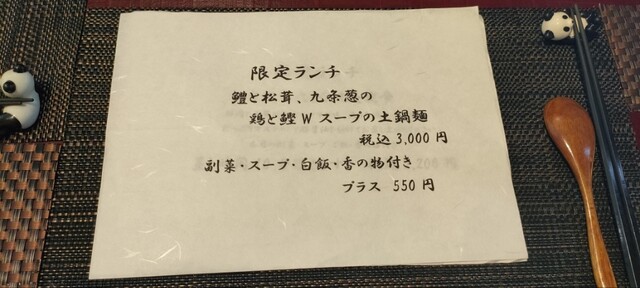 限定ランチ
鱧と松茸、九条葱の
鶏と鰹Wスープの土鍋麺
税込3,000円
副菜・スープ・白飯・香の物付き
プラス 550円